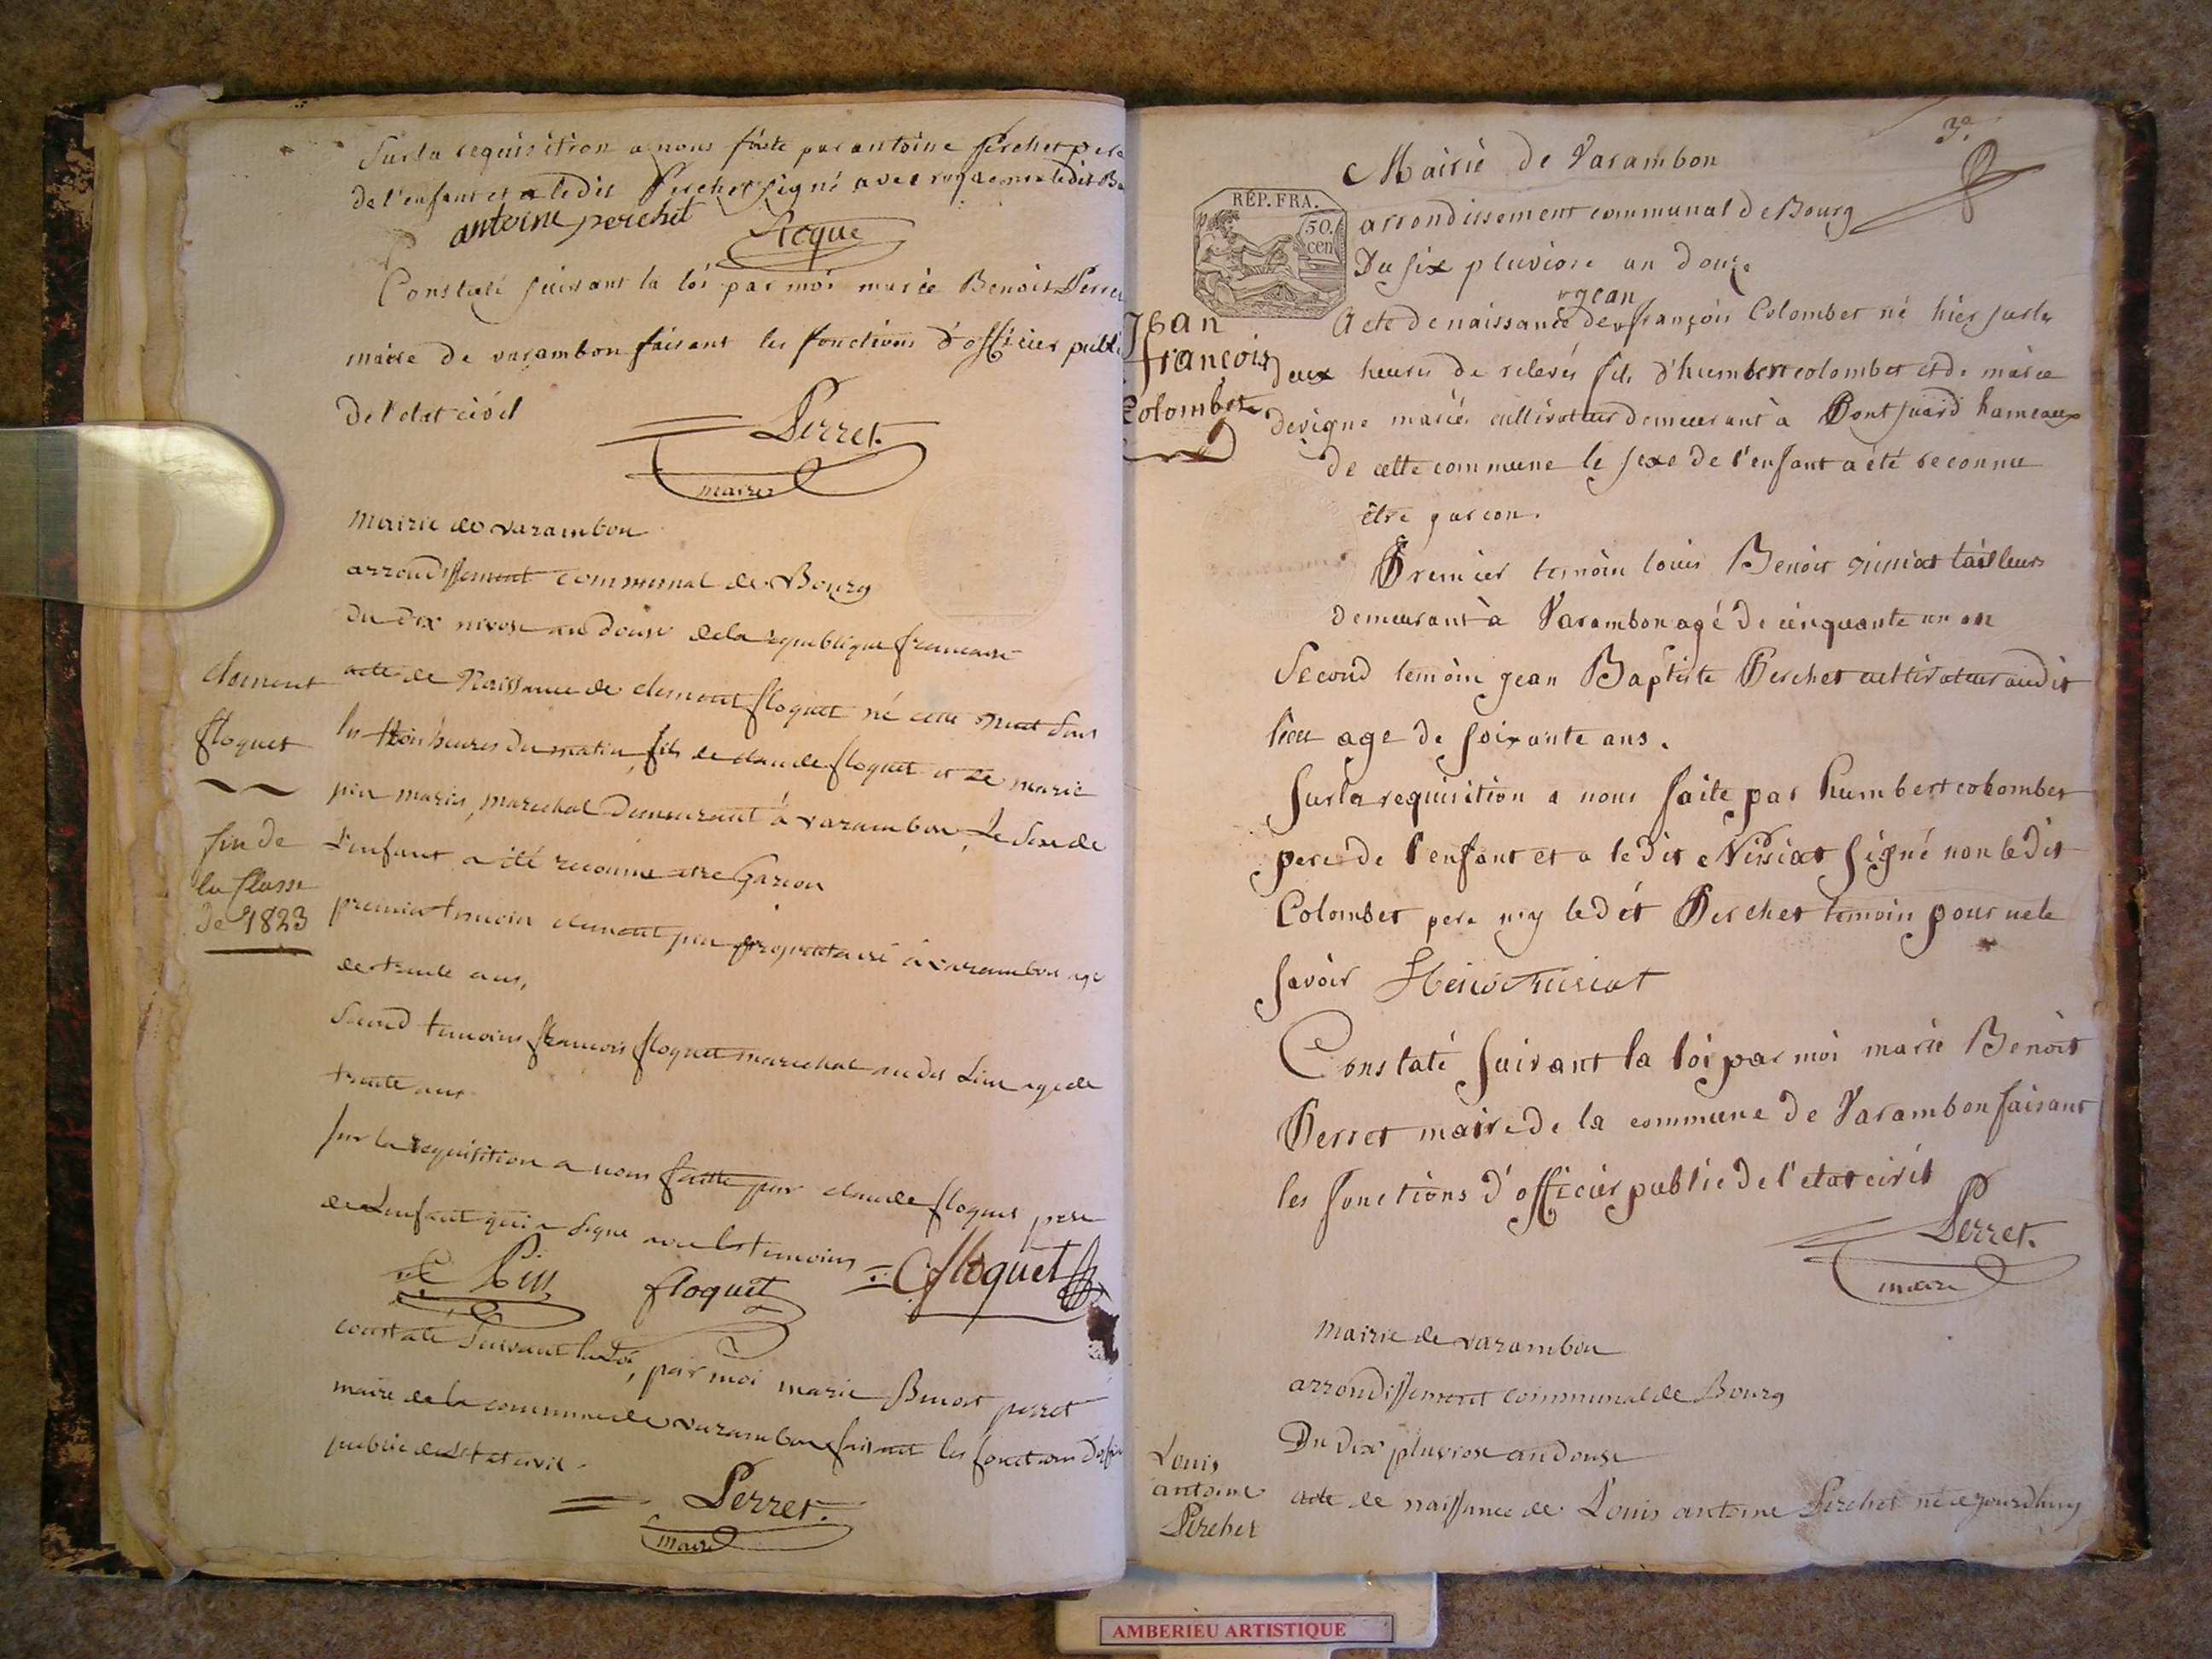 Sur la requisition a nous faite par antoine Perchet pere
de l'enfant et a le dit Perchet signé avec
antoine perchet
Constaté suivant la loi par moi marie Benoit Perret
maire de varambon faisant les fonctions d'officier publi
de l'etat civil
Perret.
maire
mairie de varambon
arrondissement communal de Bourg
du dix nivose an douse de la republique francaise
acte de Naissance de clement floquet né cette nuit sur
les trois heures du matin, fils de claude floquet et de marie
pin mariés, marechal demeurant à varambon, Le sexe de
L'enfant a été reconnu etre Garcon
premier temoin clement pin propriétaire à varambon age
de trente ans,
Second temoins francois floquet marechal au dit Lieu age de
trente ans
sur la requisition a nous faitte par claude floquet pere
de L'enfant qui a signé avec les temoins
C Pin floquet C floquet
constaté Suivant la Loi, par moi marie Benoit perret
maire de la commune de varambon faisant les fonctions d'offi
public de L'etat civil.
Perret.
maire
clement
floquet
fin de
la classe
de 1823
3e
Mairie de Varambon
RÉP. FRA.
50.
cen
arrondissement communal de Bourg
Du six pluviose an douze
gean
Acte de naissance de françois Colombet né hier sur les
deux heures de relevés fils d'humbert colombet et de marie
devigne mariés cultivateur demeurant à Pont juard hameaux
de cette commune le sexe de l'enfant a été reconnu
être garcon.
Premier temoin louis Benoit niniat tailleur
demeurant à Varambon agé de cinquante un an
Second temoin gean Baptiste Perchet cultivateur audit
lieu age de soixante ans.
Sur la requisition a nous faite par humbert colombet
pere de l'enfant et a le dit Niniat signé non le dit
Colombet pere ny le dit Perchet temoin pour ne le
savoir
Constaté suivant la loi par moi marie Benoit
Perret maire de la commune de Varambon faisant
les fonctions d'officier public de l'etat civil
Perret.
maire
Jean
françois
Colombet
mairie de varambon
arrondissement communal de Bourg
Du dix pluviose an douse
acte de naissance de Louis antoine Perchet né cejourdhuy
Louis
antoine
Perchet
AMBERIEU ARTISTIQUE